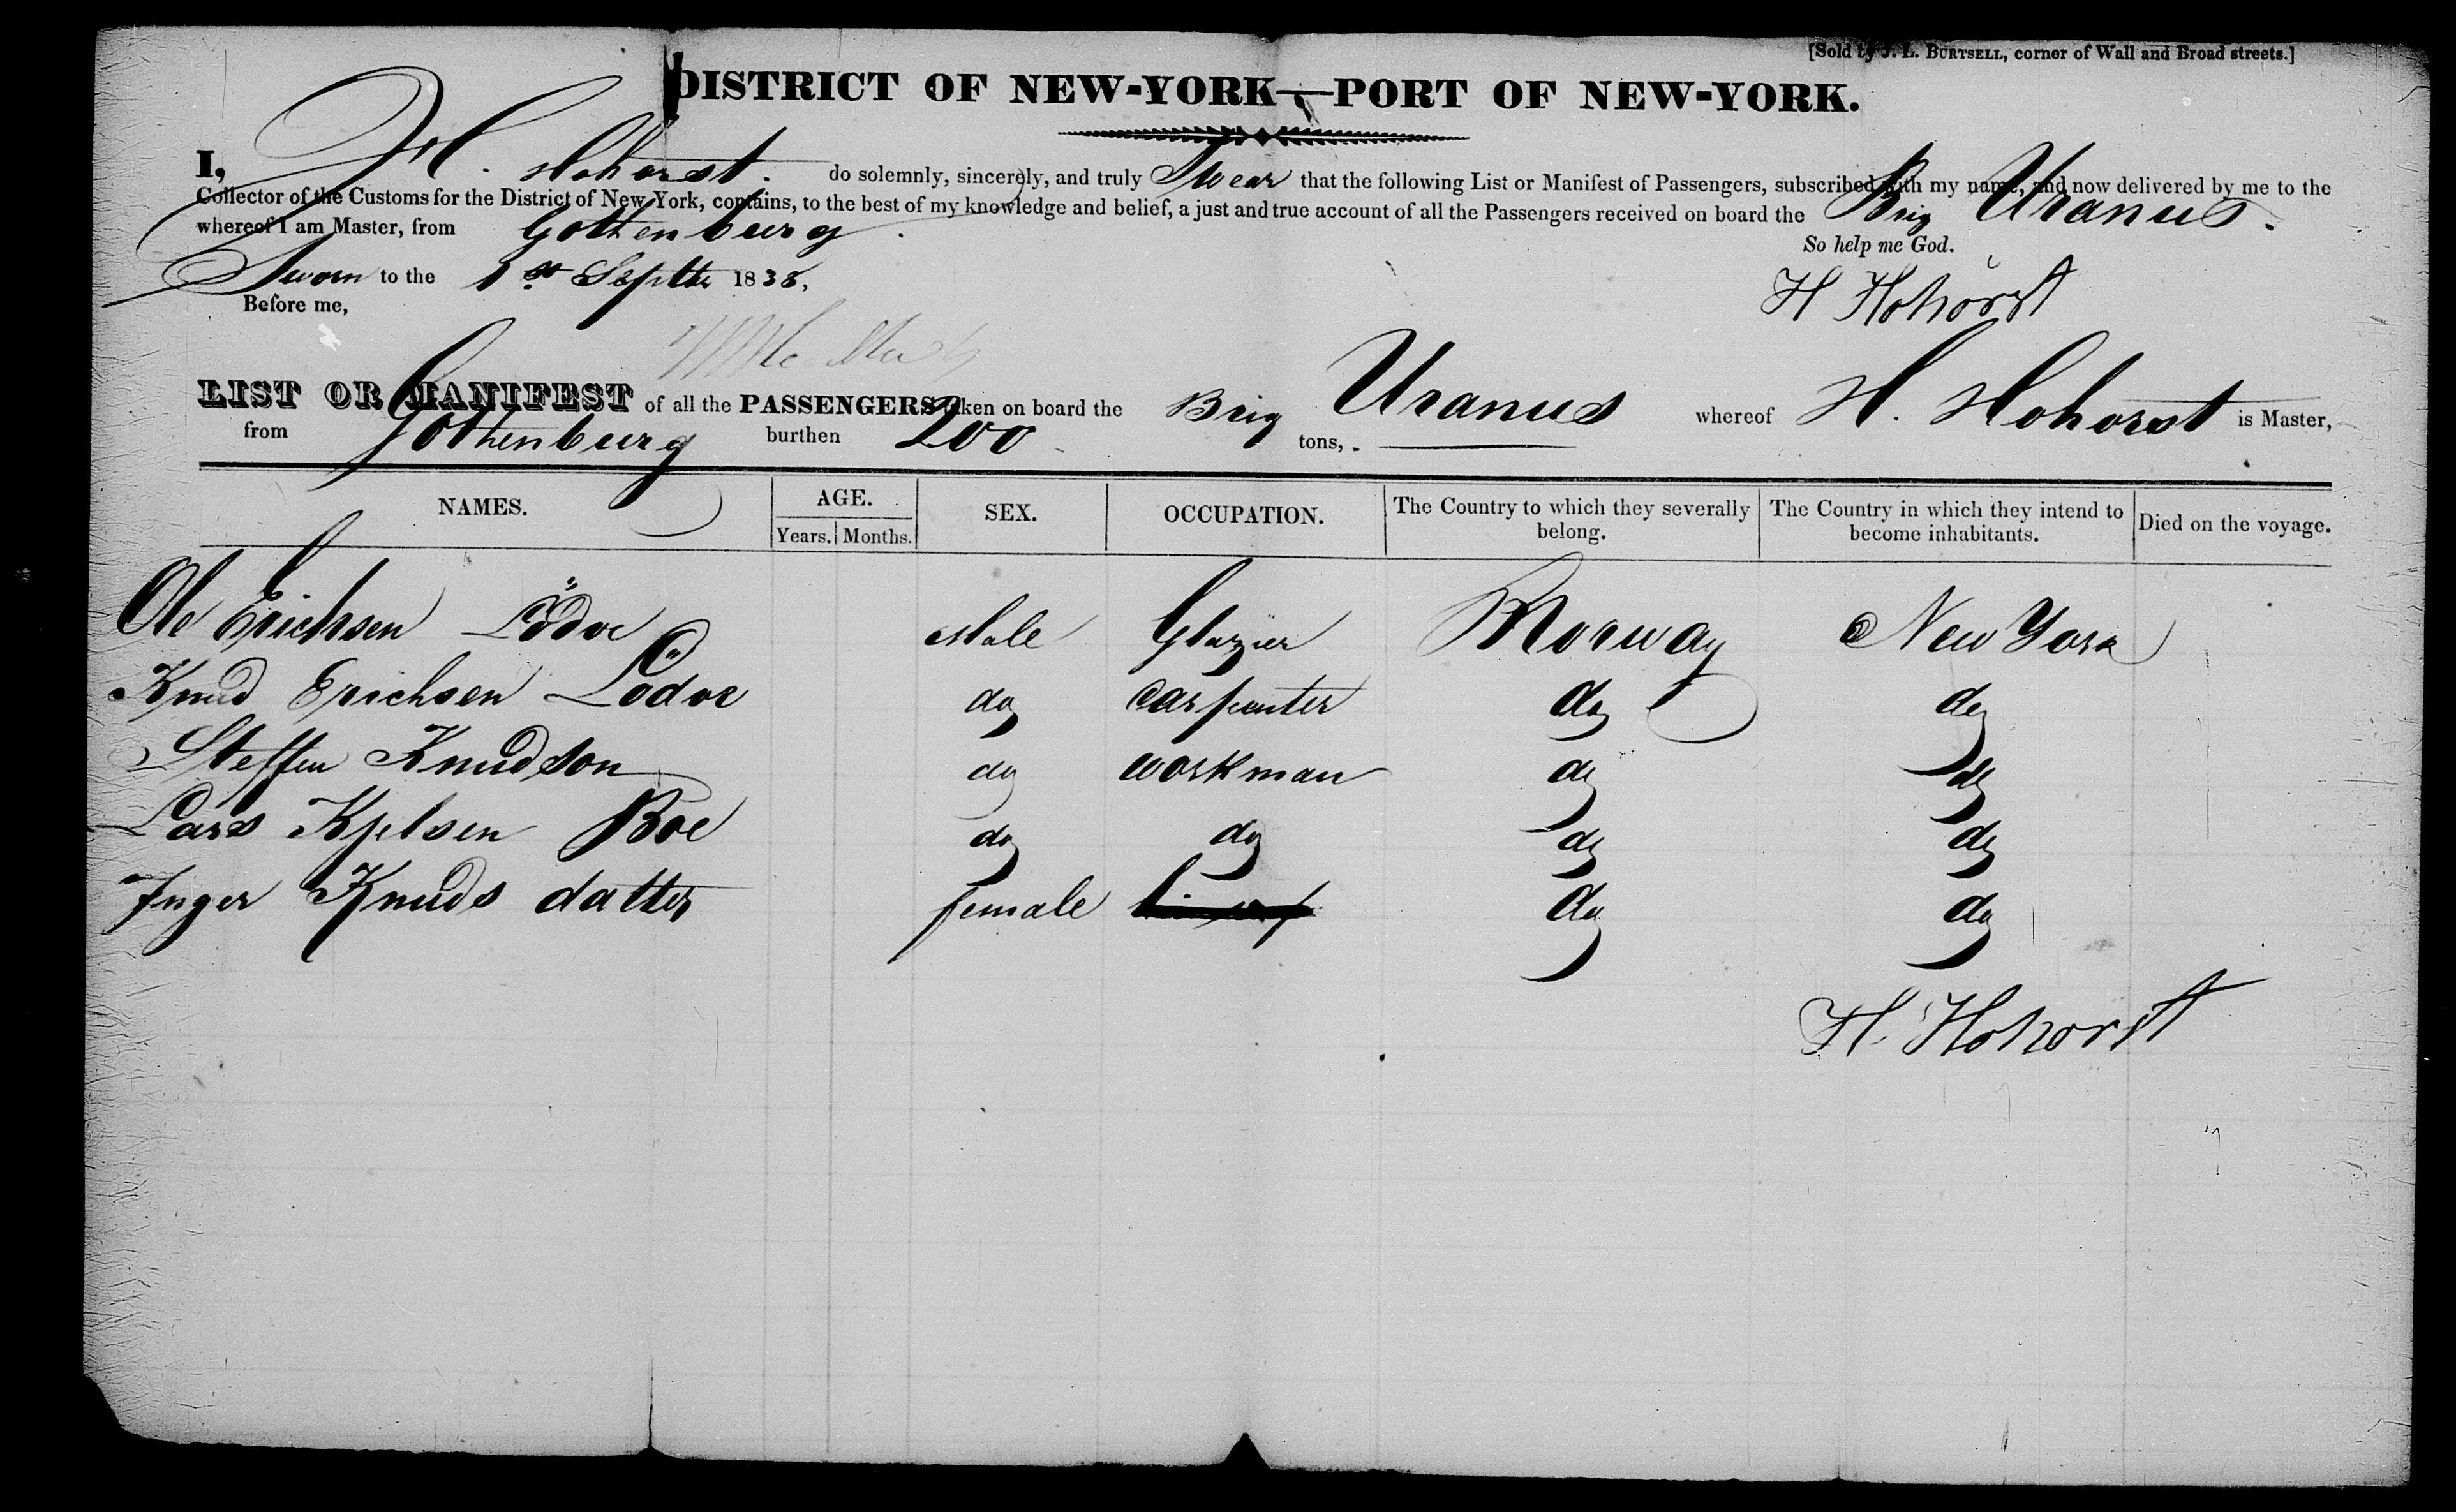 [Sold by J. L. BURTSELL, corner of Wall and Broad streets.]
DISTRICT OF NEW-YORK—PORT OF NEW-YORK.
I, H. Hohorst. do solemnly, sincerely, and truly Swear that the following List or Manifest of Passengers, subscribed with my name, and now delivered by me to the
Collector of the Customs for the District of New York, contains, to the best of my knowledge and belief, a just and true account of all the Passengers received on board the Brig Uranus.
whereof I am Master, from Gothenburg.
So help me God.
Sworn to the 1st Septbr 1838.
H Hohorst
Before me,
LIST OR MANIFEST of all the PASSENGERS taken on board the Brig Uranus whereof H. Hohorst is Master,
from Gothenburg burthen 200 tons,
NAMES. AGE. SEX. OCCUPATION. The Country to which they severally belong. The Country in which they intend to become inhabitants. Died on the voyage.
Years. Months.
Ole Erichsen Lödoe Male Glazier Norway New York
Knud Erichsen Lödoe do carpenter do do
Steffen Knudson do workman do do
Lars Kjelsen Boe do do do do
Inger Knuds datter female do do
H. Hohorst